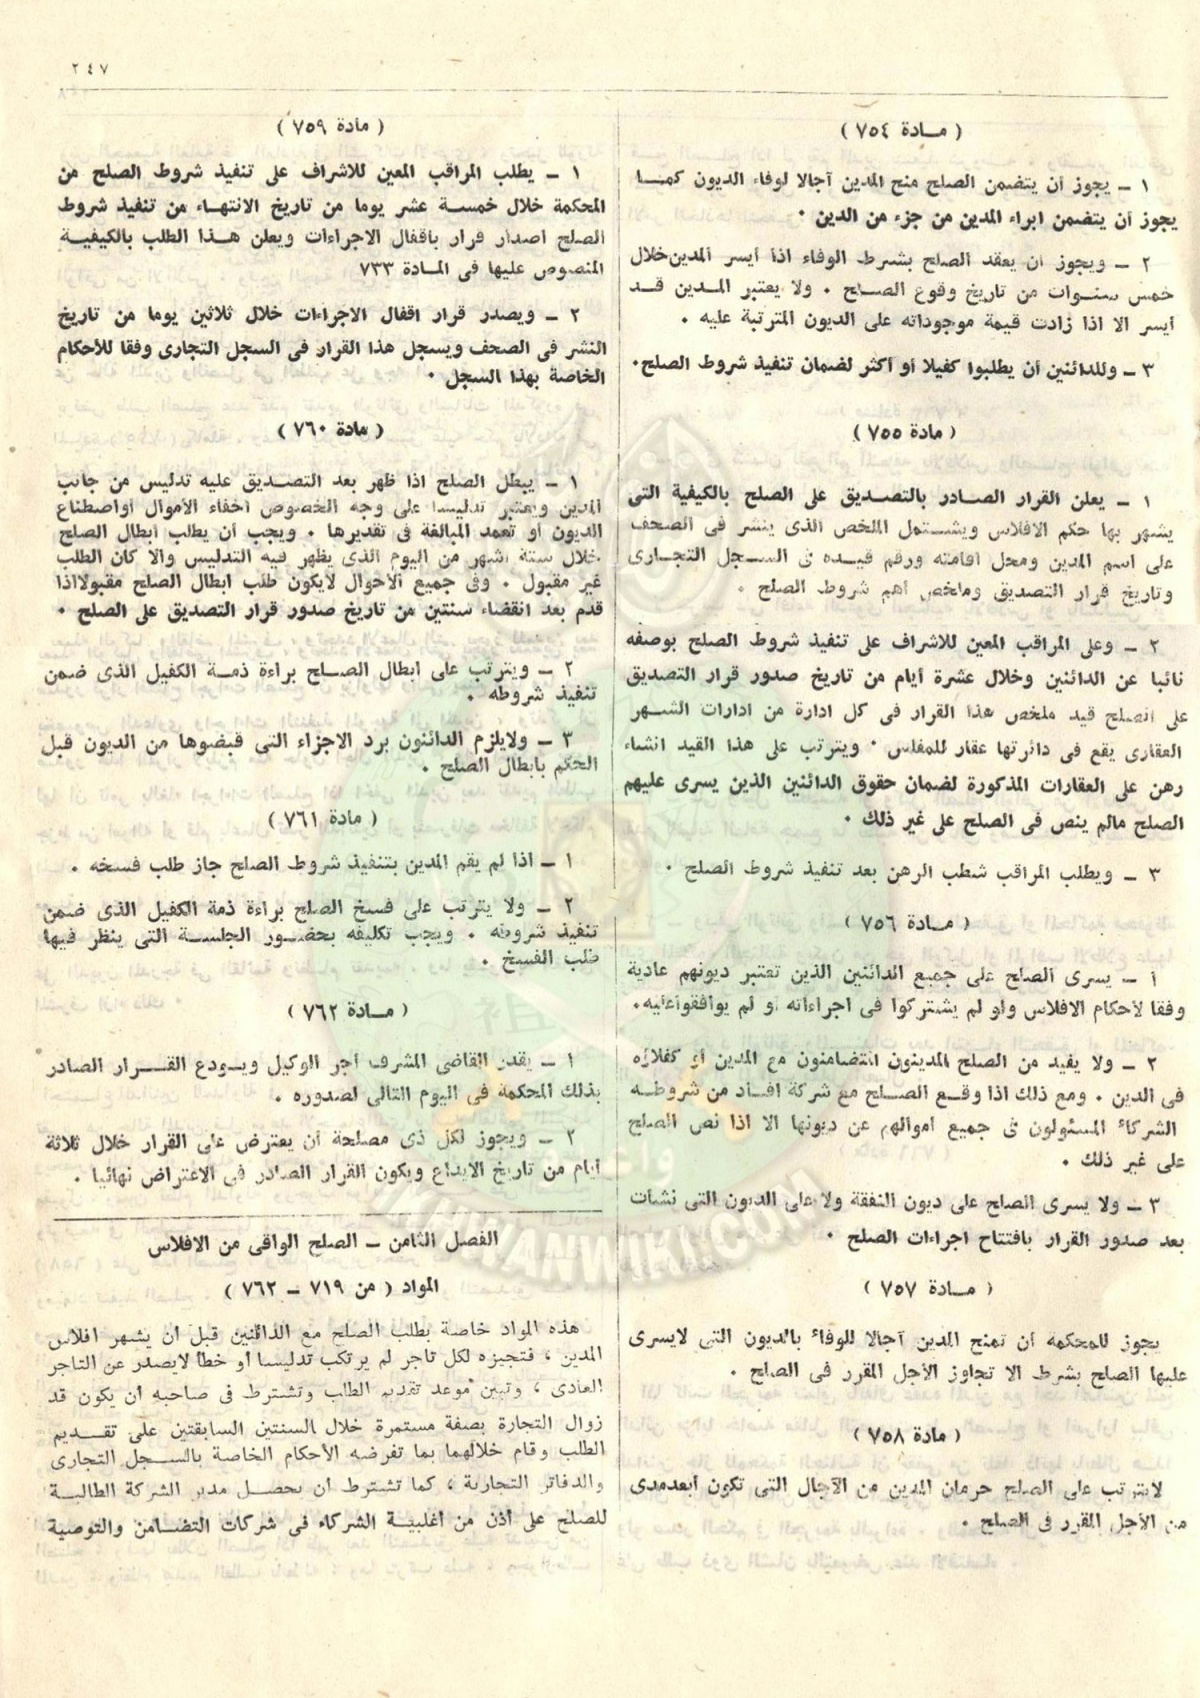 ٢٤٧
( مـادة ٧٥٤ )
١ ـ يجوز أن يتضمن الصلح منح المدين آجالا لوفاء الديون كمـا
يجوز أن يتضمن ابراء المدين من جزء من الدين .
٢ ـ ويجوز ان يعقد الصلح بشرط الوفاء اذا أيسر المدين خلال
خمس سنـوات من تاريخ وقوع الصلـاح . ولا يعتبر المـدين قـد
أيسر الا اذا زادت قيمة موجوداته على الديون المترتبة عليه .
٣ ـ وللدائنين أن يطلبوا كفيلا أو أكثر لضمان تنفيذ شروط الصلح .
( مادة ٧٥٥ )
١ ـ يعلن القرار الصـادر بالتصـديق على الصلح بالكيفية التى
يشهر بها حكم الافلاس ويشـتمل الملخص الذى ينشر فى الصحف
على اسم المدين ومحل اقامته ورقم قيـده فى السـجل التجـارى
وتاريخ قرار التصديق وملخص أهم شروط الصلح .
٢ ـ وعلى المراقب المعين للاشراف على تنفيذ شروط الصلح بوصفه
نائبا عن الدائنين وخلال عشرة أيام من تاريخ صدور قرار التصديق
على الصلح قيد ملخص هذا القرار فى كل ادارة من ادارات الشـهر
العقارى يقع فى دائرتها عقار للمفلس . ويترتب على هذا القيد انشاء
رهن على العقارات المذكورة لضمان حقوق الدائنين الذين يسرى عليهم
الصلح مالم ينص فى الصلح على غير ذلك .
٣ ـ ويطلب المراقب شطب الرهن بعد تنفيذ شروط الصلح .
( مـادة ٧٥٦ )
١ ـ يسرى الصلح على جميع الدائنين الذين تعتبر ديونهم عادية
وفقا لأحكام الافلاس ولو لم يشتركوا فى اجراءاته أو لم يوافقوا عليه .
٢ ـ ولا يفيد من الصلح المدينون المتضامنون مع المدين أو كفلاؤه
فى الدين . ومع ذلك اذا وقـع الصـلح مع شركة افـاد من شروطـه
الشركاء المسئولون فى جميع أموالهم عن ديونها الا اذا نص الصلح
على غير ذلك .
٣ ـ ولا يسرى الصلح على ديون النفقة ولا على الديون التى نشأت
بعد صدور القرار بافتتاح اجراءات الصلح .
( مـادة ٧٥٧ )
يجوز للمحكمة أن تمنح المدين آجالا للوفاء بالديون التى لايسرى
عليها الصلح بشرط الا تجاوز الأجل المقرر فى الصلح .
( مادة ٧٥٨ )
لايترتب على الصلح حرمان المدين من الآجال التى تكون أبعد مدى
من الأجل المقرر فى الصلح .
( مادة ٧٥٩ )
١ ـ يطلب المراقب المعين للاشراف على تنفيذ شروط الصلح من
المحكمة خلال خمسـة عشر يوما من تاريخ الانتهـاء من تنفيذ شروط
الصلح اصدار قرار باقفال الاجراءات ويعلن هـذا الطلب بالكيفيـة
المنصوص عليها فى المـادة ٧٣٣
٢ ـ ويصدر قرار اقفال الاجراءات خلال ثلاثين يوما من تاريخ
النشر فى الصحف ويسجل هذا القرار فى السجل التجارى وفقا للأحكام
الخاصة بهذا السجل .
( مادة ٧٦٠ )
١ ـ يبطل الصلح اذا ظهر بعد التصـديق عليه تدليس من جانب
المدين ويعتبر تدليسا على وجه الخصوص اخفاء الأموال أواصطناع
الديون أو تعمد المبالغة فى تقديرها . ويجب أن يطلب ابطال الصلح
خلال ستة أشهر من اليوم الذى يظهر فيه التدليس والا كان الطلب
غير مقبول . وفى جميع الاحوال لايكون طلب ابطال الصلح مقبولااذا
قدم بعد انقضاء سنتين من تاريخ صدور قرار التصديق على الصلح .
٢ ـ ويترتب على ابطال الصـلح براءة ذمـة الكفيل الذى ضمن
تنفيذ شروطه .
٣ ـ ولايلزم الدائنون برد الاجزاء التى قبضوها من الديون قبل
الحكم بابطال الصلح .
( مادة ٧٦١ )
١ ـ اذا لم يقم المدين بتنفيذ شروط الصلح جاز طلب فسخه .
٢ ـ ولا يترتب على فسخ الصلح براءة ذمة الكفيل الذى ضمن
تنفيذ شروطه . ويجب تكليفه بحضـور الجلسـة التى ينظر فيها
طلب الفسخ .
( مـادة ٧٦٢ )
١ ـ يقدر القاضى المشرف أجر الوكيل ويـودع القـرار الصادر
بذلك المحكمة فى اليوم التالى لصدوره .
٢ ـ ويجوز لكل ذى مصلحة أن يعترض على القرار خلال ثلاثة
أيام من تاريخ الايداع ويكون القرار الصادر فى الاعتراض نهائيا .
الفصل الثامن ـ الصلح الواقى من الافلاس
المواد ( من ٧١٩ ـ ٧٦٢ )
هذه المواد خاصة بطلب الصلح مع الدائنين قبل أن يشهر افلاس
المدين ، فتجيزه لكل تاجر لم يرتكب تدليسا أو خطأ لايصدر عن التاجر
العادى ، وتبين موعد تقديم الطلب وتشترط فى صاحبه أن يكون قد
زوال التجارة بصفة مستمرة خلال السنتين السابقتين على تقـديم
الطلب وقام خلالهما بما تفرضه الأحكام الخاصة بالسـجل التجارى
والدفاتر التجارية ، كما تشترط أن يحصـل مدير الشركة الطالبـة
للصلح على أذن من أغلبية الشركاء فى شركات التضامن والتوصية
MANWANWIKI.COM